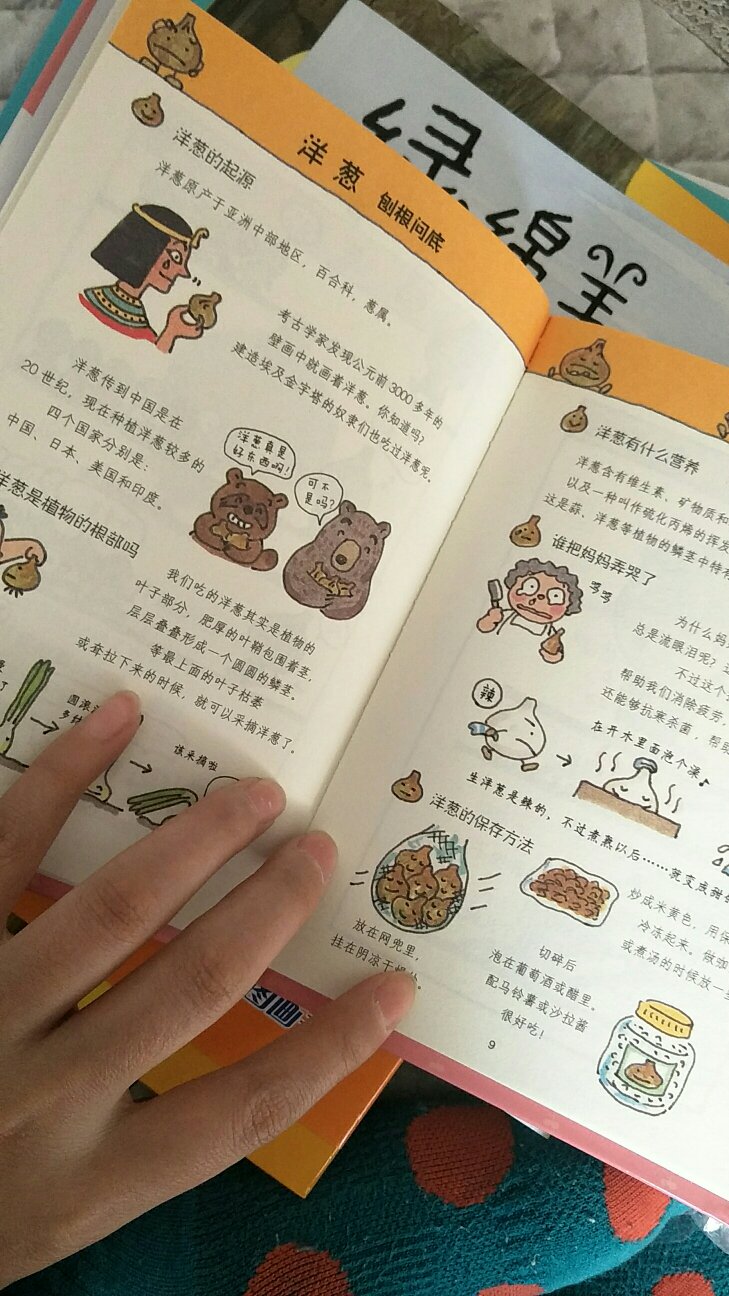 洋葱 刨根问底
洋葱的起源
洋葱原产于亚洲中部地区，百合科，葱属。
考古学家发现公元前3000多年的
壁画中就画着洋葱。你知道吗？
建造埃及金字塔的奴隶们也吃过洋葱呢。
洋葱传到中国是在
20世纪，现在种植洋葱较多的
四个国家分别是：
中国、日本、美国和印度。
洋葱真是
好东西呀！
可不
是吗？
洋葱是植物的根部吗
我们吃的洋葱其实是植物的
叶子部分，肥厚的叶鞘包围着茎，
层层叠叠形成一个圆圆的鳞茎。
等最上面的叶子枯萎
或耷拉下来的时候，就可以采摘洋葱了。
圆滚
该采摘啦
洋葱有什么营养
洋葱含有维生素、矿物质和
以及一种叫作硫化丙烯的挥发
这是蒜、洋葱等植物的鳞茎中特有
谁把妈妈弄哭了
哆哆
为什么妈
总是流眼泪呢？
不过这个
帮助我们消除疲劳，
还能够抗寒杀菌，帮助
辣
在开水里面泡个澡♪
生洋葱是辣的，不过煮熟以后……就变成甜
洋葱的保存方法
放在网兜里，
挂在阴凉干燥处。
炒成米黄色，用保
冷冻起来。做咖
或煮汤的时候放一
切碎后
泡在葡萄酒或醋里。
配马铃薯或沙拉酱
很好吃！
9